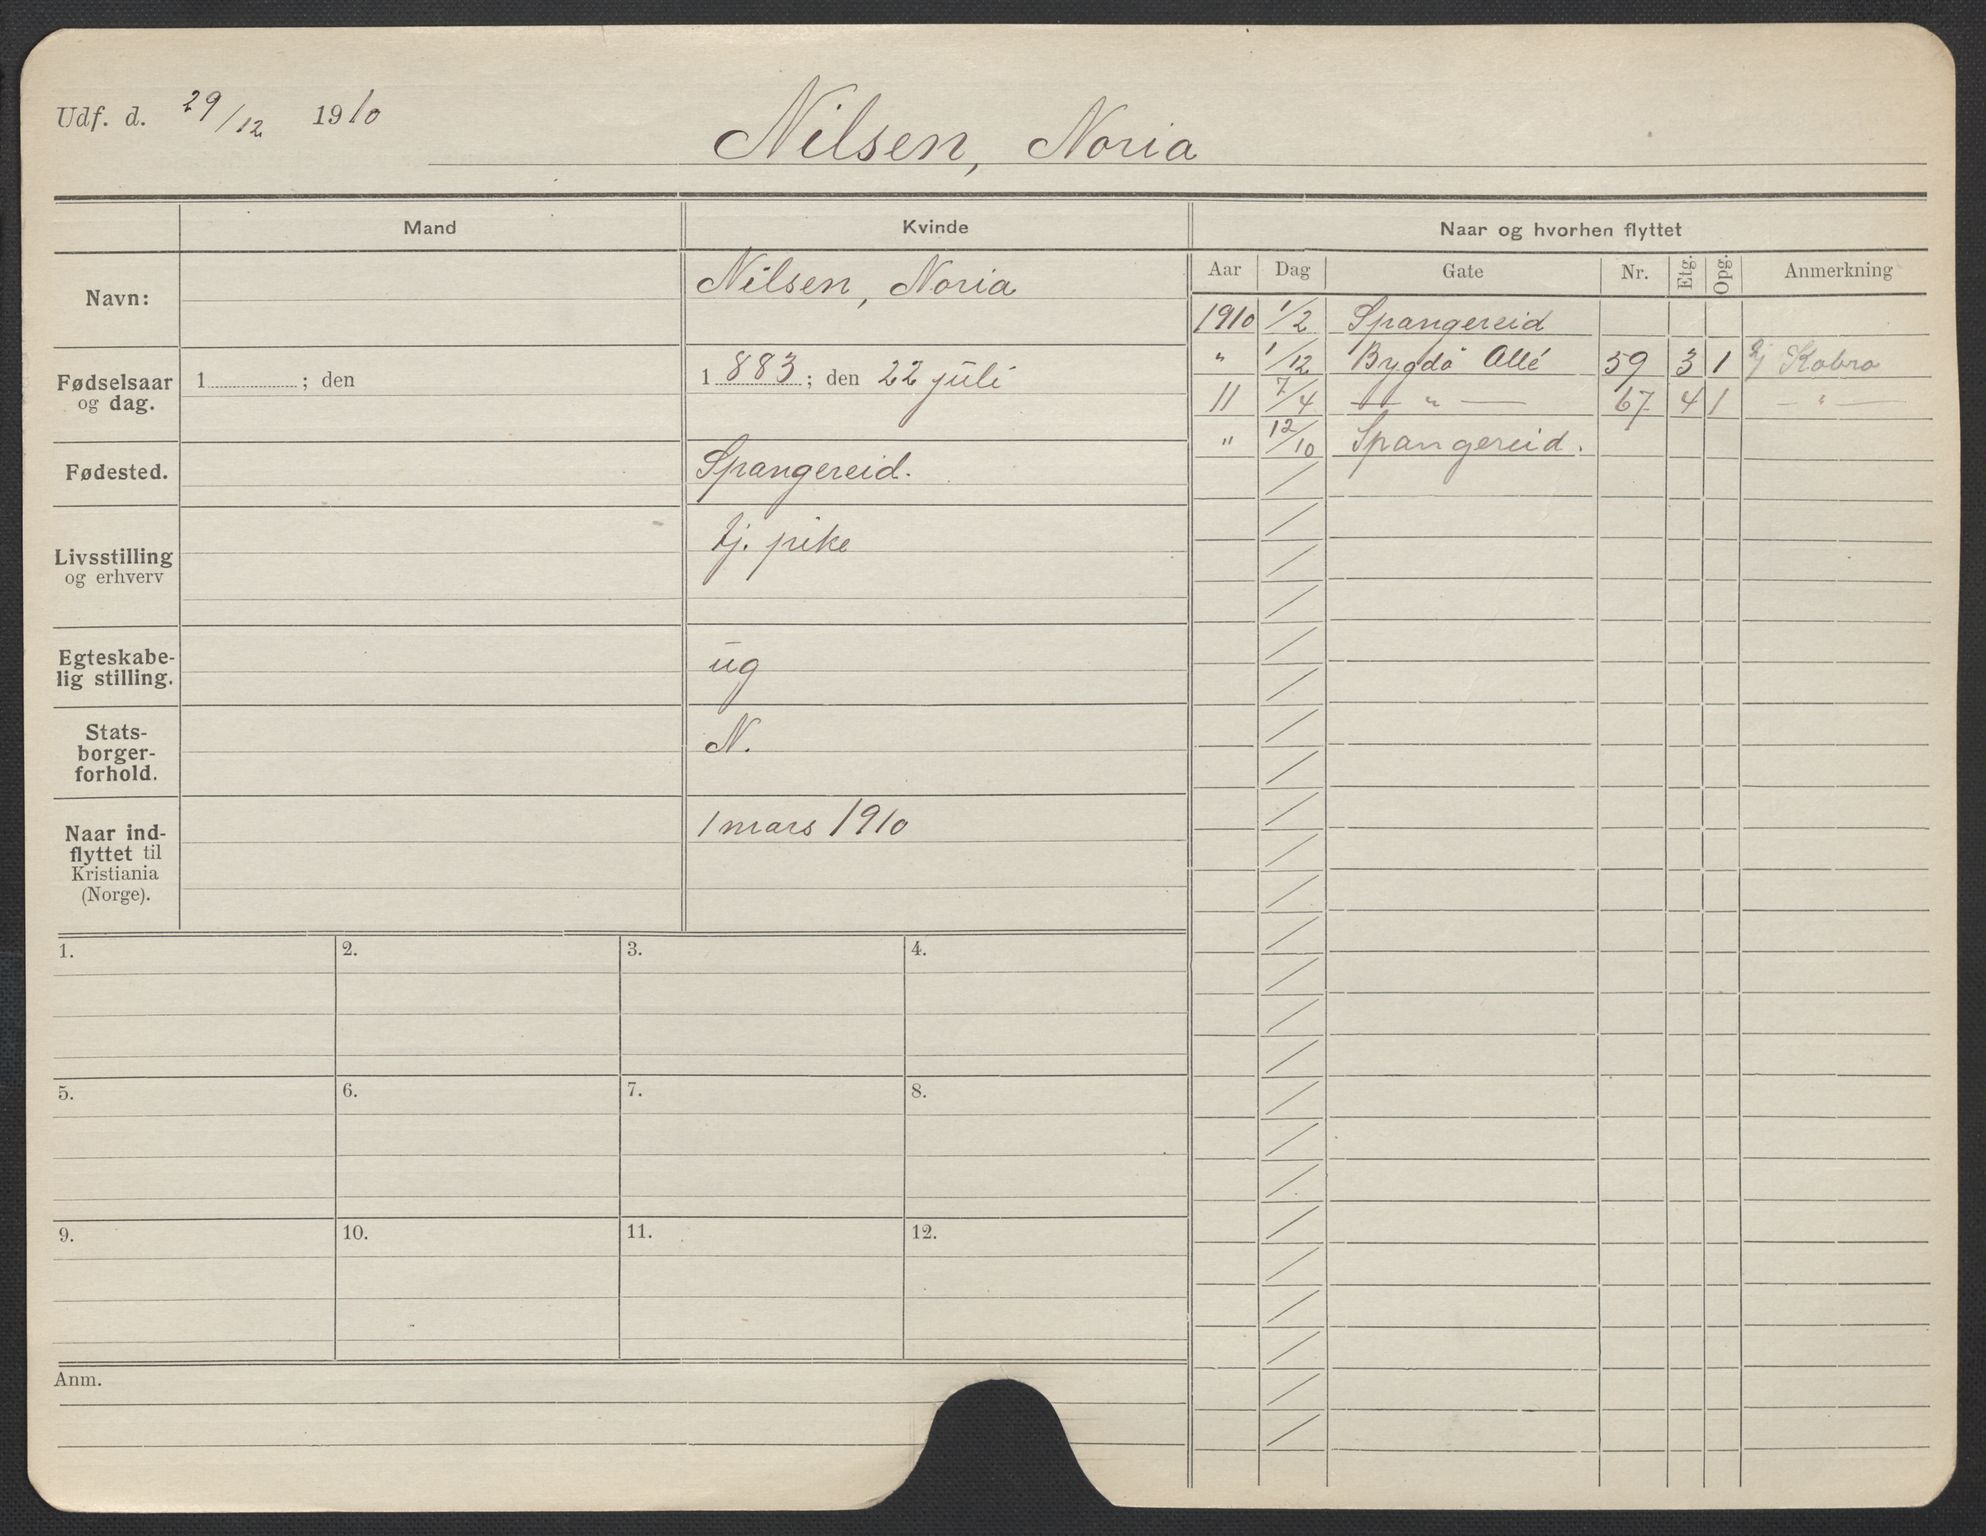 Udf. d. 29/12 1910
Nilsen, Noria
Mand Kvinde Naar og hvorhen flyttet
Aar Dag Gate Nr. Etg. Opg. Anmerkning
Navn: Nilsen, Noria
1910 1/2 Spangereid
" 1/12 Bygdö Allé 59 3 1 tj Kobro
11 7/4 — " — 67 4 1 — " —
" 12/10 Spangereid.
Fødselsaar og dag. 1 ; den 1883; den 22 juli
Fødested. Spangereid.
Livsstilling og erhverv tj. pike
Egteskabe-
lig stilling. ug
Stats-
borger-
forhold. N.
Naar ind-
flyttet til
Kristiania
(Norge). 1 mars 1910
1. 2. 3. 4.
5. 6. 7. 8.
9. 10. 11. 12.
Anm.